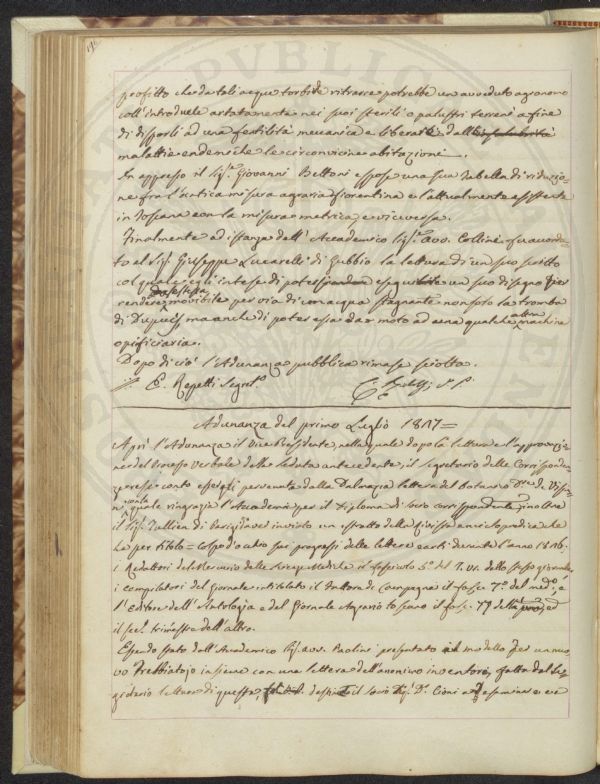 profitto che da tali acque torbide ritrarre potrebbe un avveduto agronomo
coll'introdurle artatamente nei suoi sterili o palustri terreni a fine
di disporli ad una fertilità meccanica e liberarli dall'insalubrità
malattie endemiche le circonvicine abitazioni.
In appresso il Sig.r Giovanni Bettoni espose una sua Tabella di riduzio=
ne fra l'antica misura agraria fiorentina e l'attualmente esistente
in Toscana con la misura metrica, e viceversa.
Finalmente ad istanza dell'Accademico Sig.r avv. Collini fu accorda=
to al Sig. Giuseppe Lucarelli di Gubbio la lettura di un suo scritto
col quale egli intese di poter eseguire un suo disegno per
rendere movibile per via di un acqua stagnante non solo la tromba
di ma anche di poter essa dar moto ad una qualche altra machina
opificiaria.
Dopo di ciò l'Adunanza pubblica rimase sciolta.
E. Repetti Segret.o
Adunanza del primo Luglio 1817=
Aprì l'Adunanza il Vice Presidente, nella quale dopo la lettura e l'approvazio=
ne del Processo Verbale della Seduta antecedente, il Segretario delle Corrisponden=
ze rese conto essergli pervenuta dalla Dalmazia lettera del Botanico D.re de Visia=
ni colla quale ringrazia l'Accademia per il Diploma di Socio corrispondente, inoltre
il Sig. Jullien di Parigi aver inviato un estratto della Rivista enciclopedica che
ha per titolo = Colpo d'occhio sui progressi delle lettere e arti durante l'anno 1816.
i Redattori del Mercurio delle Scienze Mediche il fascicolo 5.o del T. VI. dello stesso giornale,
i compilatori del Giornale intitolato il Fattore di Campagna il fasc. 7.o del med.o, e
l'Editore dell'Antologia e del Giornale Agrario toscano il fasc. 77 della prima, ed
il sec. trimestre dell'altro.
Essendo stato dall'Accademico Sig. avv. Paolini presentato il modello per un nuo=
vo Trebbiatojo insieme con una lettera dell'anonimo inventore, fatta dal Se=
gretario lettura di questa, il Socio Sig. D.r Cioni ad esaminare